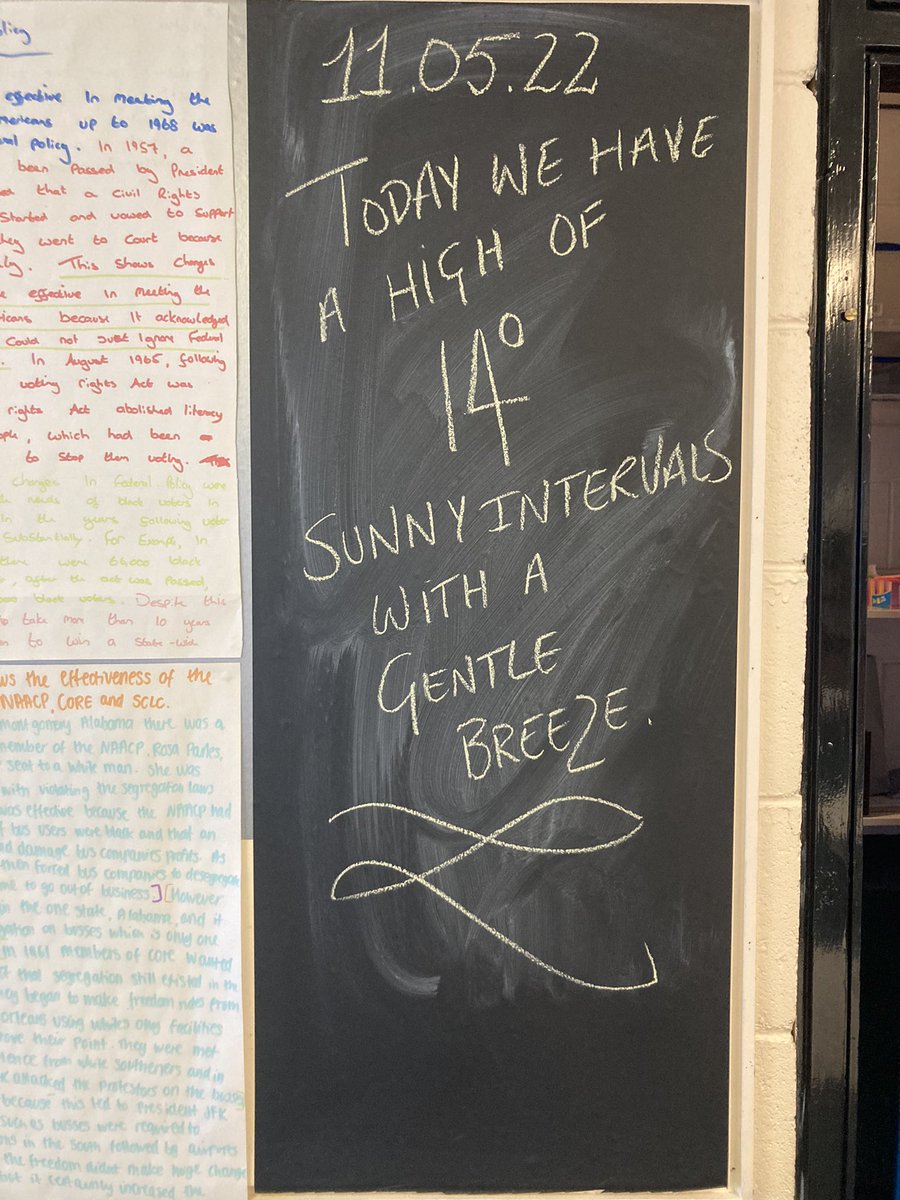 olicy
effective In meeting the
mericans up to 1968 was
ral policy. In 1957, a
been Passed by President
ed that a Civil Rights
Started and vowed to support
they went to Court because
ly. This shows changes
e effective In Meeting the
ricans because It acknowledged
Could not Just Ignore Federal
. In August 1965, following
voting rights Act was
rights Act abolished literacy
ople, which had been
to Stop them voting.
changes In Federal Policy were
needs of black voters In
In the years following voter
Substantially. For Exampl, In
there were 66000 black
, after the act was Passed,
000 black voters. Despite this
to take more than 10 years
to win a State-wide
ws the effectiveness of the
NAACP, CORE and SCLC.
montgomery Alabama there was a
member of the NAACP, Rosa Parks,
seat to a white man. She was
with violating the segregation laws
was effective because the NAACP had
f bus users were black and that an
d damage bus companies profits. As
men forced bus companies to desegregate
me to go out of business][However
in the one state, Alabama, and it
gation on busses which is only one
In 1961 members of CORE wanted
t that segregation still existed in the
hey began to make freedom rides from
orleans using whites only facilities
rove their point. They were met
lence from white southerners and in
K attacked the Protestors on the busses
because this led to President JFK
such as busses were required to
ons in the South followed by airports
the freedom rides make huge change
but it certainly increased the
11.05.22
TODAY WE HAVE
A HIGH OF
14°
SUNNY INTERVALS
WITH A
GENTLE
BREEZE.